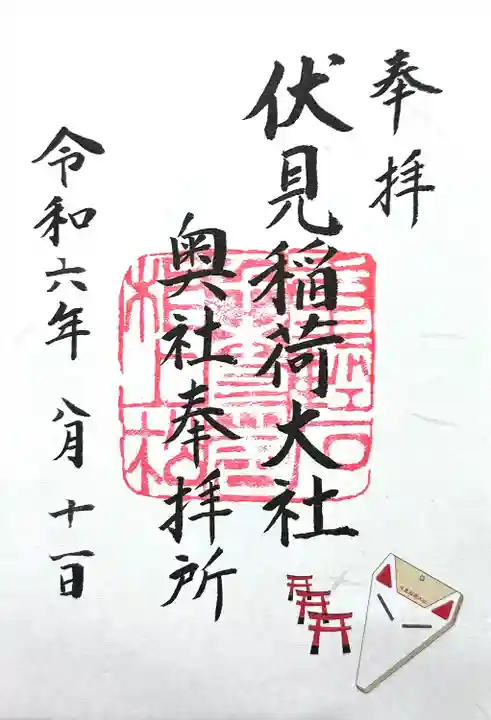 奉拝
伏見稲荷大社
奥社奉拝所
令和六年八月十一日